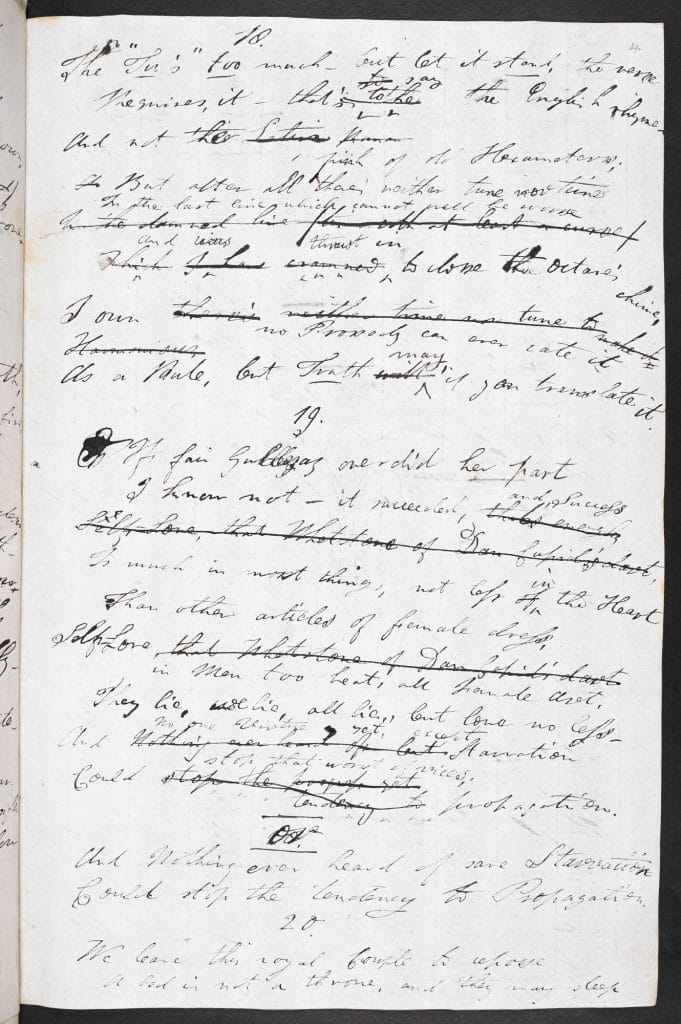 4
18.
The "Tu's" too much – but let it stand, the verse
to say
Requires, it – that's to the the English rhyme –
And not the Latin Roman
pink of old Hexameters;
But after all there's neither tune nor time
In the last line which cannot well be worse
In the damned line
and was thrust in
Which I have crammed to close the octave's chime,
I own there is neither time nor tune to make it
no Prosody can ever rate it
Harmonious,
may,
As a Rule, but Truth will if you translate it.
19.
If fair Gulbeyaz overdid her part
and Success
I know not – it succeeded, that's enough
Self-Love, that Whetstone of Dan Cupid's dart,
in
Is much in most things, not less in the Heart
Than other articles of female dress,
Self-Love that Whetstone of Dan Cupid's dart
in Men too beats, all female art,
They lie, we lie, all lie, but love no less –
no one Virtue yet, except
And Nothing ever heard of but Starvation
stop that worst of vices,
Could stop the
tendency to propagation.
Or.
And Nothing ever heard of save Starvation
Could stop the tendency to Propagation.
20.
We leave this royal Couple to repose
A bed is not a throne, and they may sleep